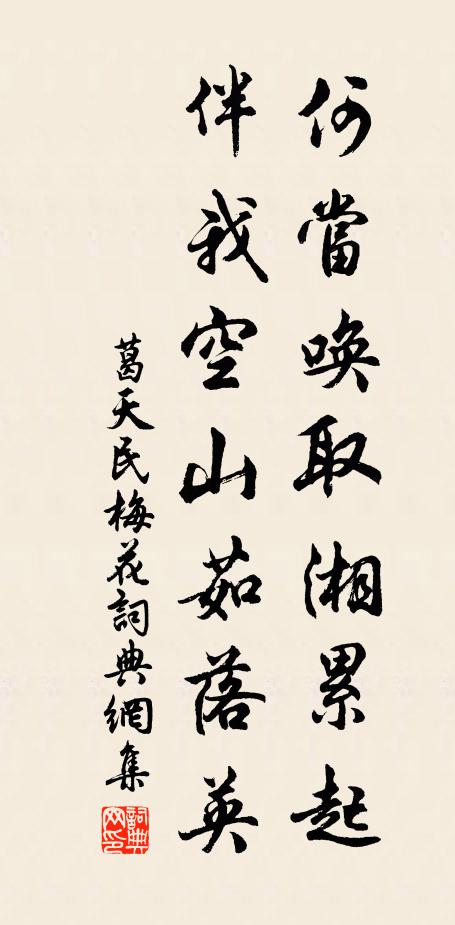 何當喚取湘累起
伴我空山茹落英
葛天民梅花詞典網集
詞典网印